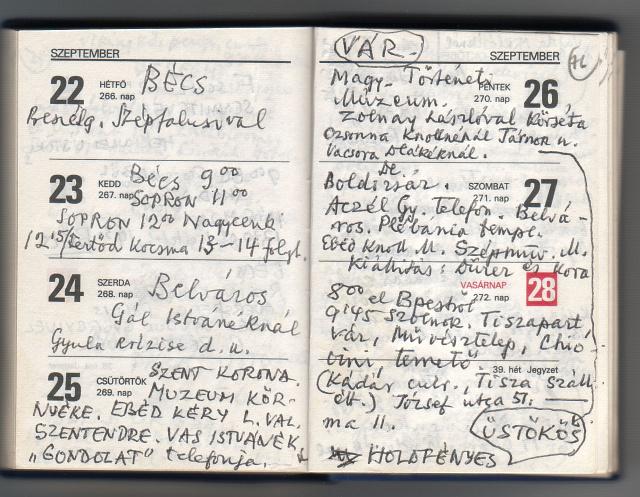 SZEPTEMBER
22 HÉTFŐ 266. nap BÉCS
Beszélg. Szépfalusival
23 KEDD 267. nap Bécs 9 00
SOPRON 11 00
SOPRON 12 00 Nagycenk
12 15/ Fertőd Kocsma 13–14 folyt.
24 SZERDA 268. nap Belváros
Gál Istvánéknál
Gyula krízise d. u.
25 CSÜTÖRTÖK 269. nap SZENT KORONA.
MUZEUM KÖR-
NYÉKE. EBÉD KÉRY L. VAL.
SZENTENDRE. VAS ISTVÁNÉK.
"GONDOLAT" telefonja.
VÁR.
SZEPTEMBER
76
Magy. Történeti
PÉNTEK 270. nap 26
Múzeum.
Zolnay Lászlóval körséta
Ozsonna Knollnénál Tárnok u.
Vacsora Deákéknál.
De.
Boldizsár. SZOMBAT 271. nap 27
Aczél Gy. Telefon. Belvá-
ros. Plébánia templ.
Ebéd Knoll M. Szépműv. M.
Kiállítás: Dürer és kora
VASÁRNAP 272. nap 28
8 00 el Bpestről
9 45 Szolnok. Tiszapart
Vár, Művésztelep,
temető
39. hét Jegyzet
(Kádár cukr., Tisza száll
ült.) József utca 51.
ma 11.
ÜSTÖKÖS
HOLDFÉNYES